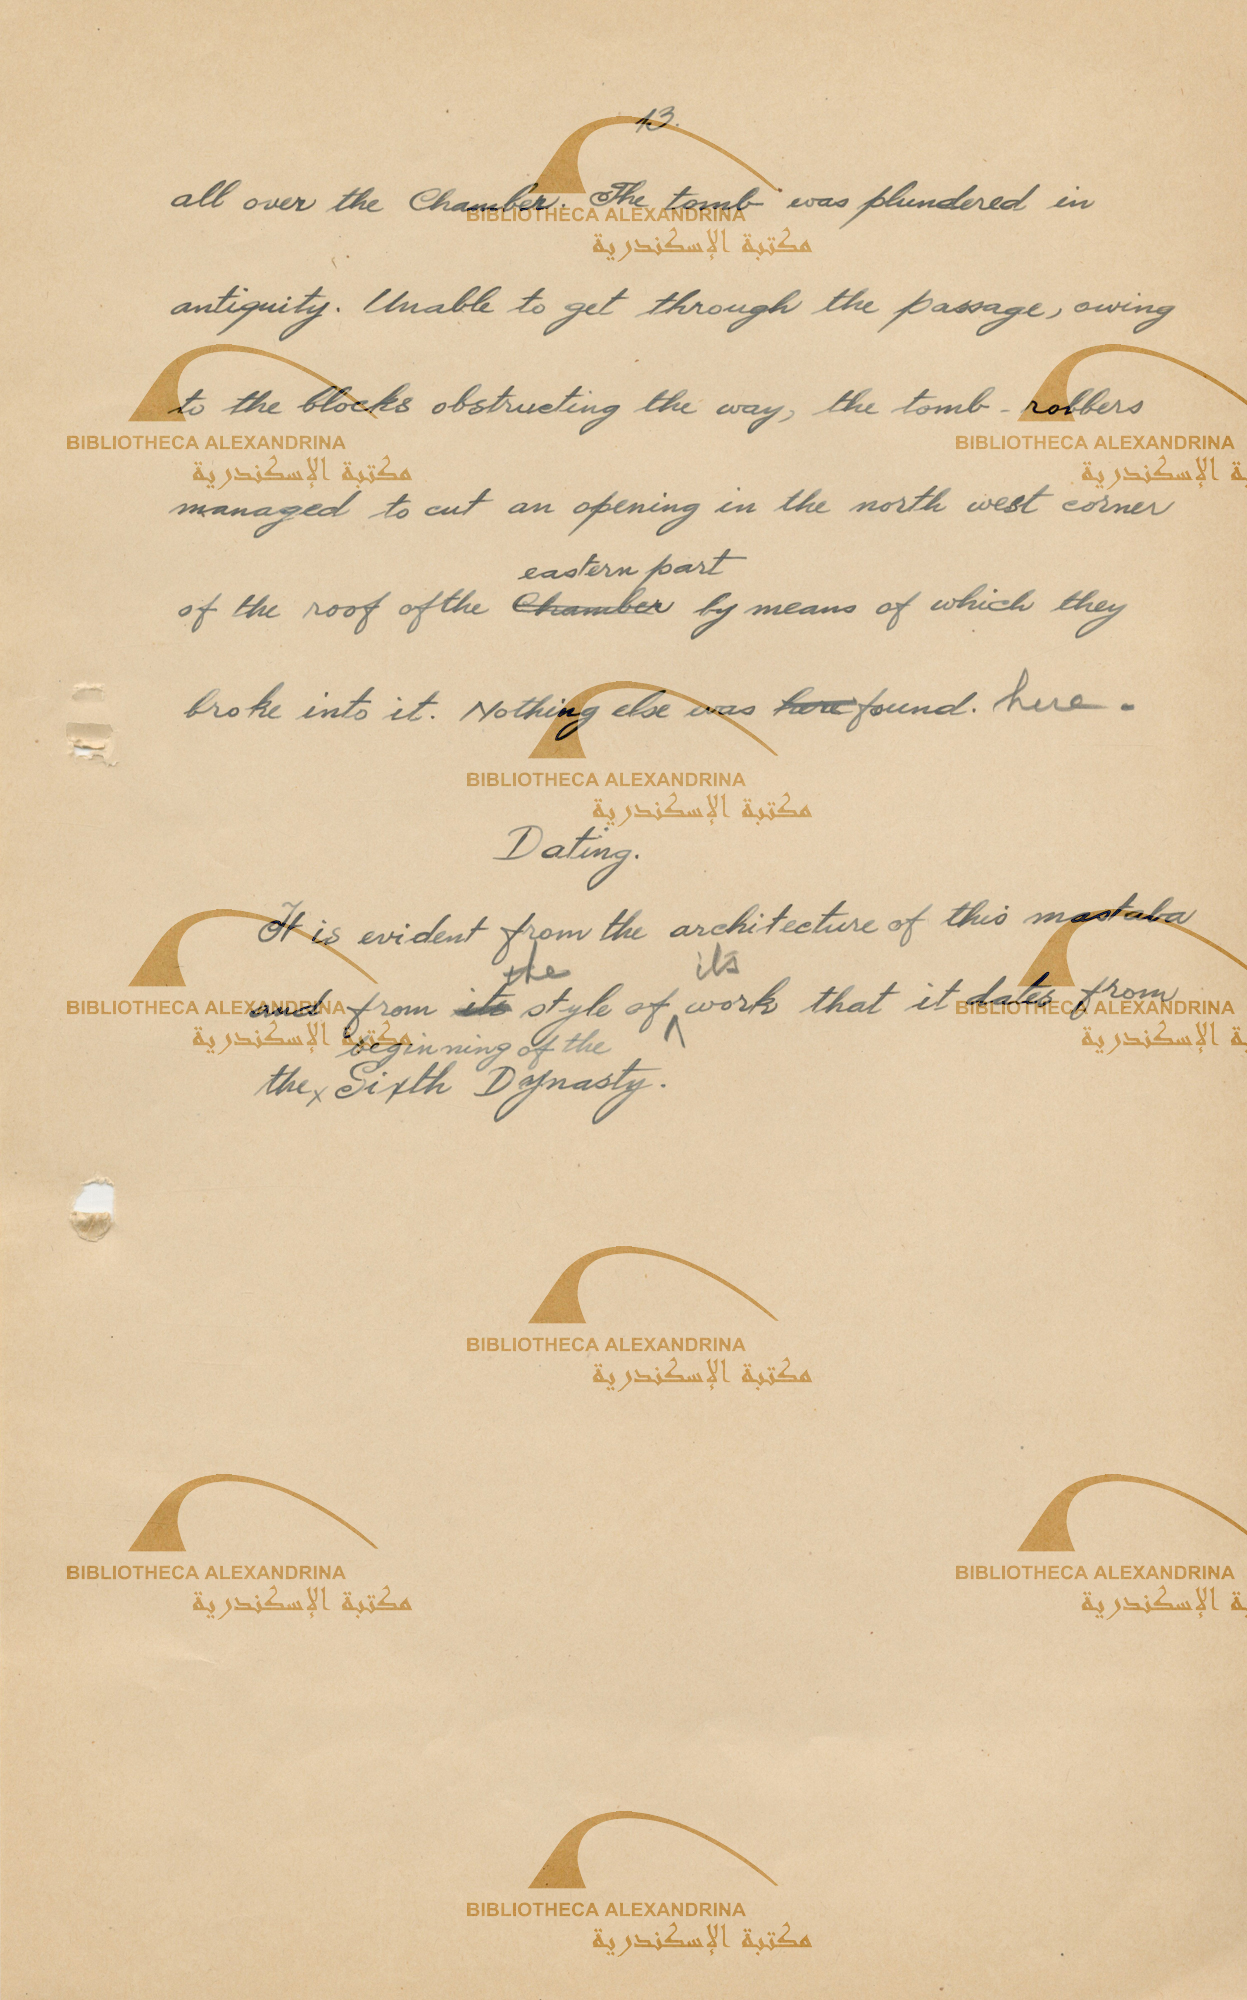 13.
all over the Chamber. The tomb was plundered in
antiquity. Unable to get through the passage, owing
to the blocks obstructing the way, the tomb-robbers
managed to cut an opening in the north west corner
eastern part
of the roof of the Chamber by means of which they
broke into it. Nothing else was here found. here.
Dating.
It is evident from the architecture of this mastaba
the its
and from its style of work that it dates from
beginning of the
the x Sixth Dynasty.
BIBLIOTHECA ALEXANDRINA
مكتبة الإسكندرية
BIBLIOTHECA ALEXANDRINA
مكتبة الإسكندرية
BIBLIOTHECA ALEXANDRINA
مكتبة الإسكندرية
BIBLIOTHECA ALEXANDRINA
مكتبة الإسكندرية
BIBLIOTHECA ALEXANDRINA
مكتبة الإسكندرية
BIBLIOTHECA ALEXANDRINA
مكتبة الإسكندرية
BIBLIOTHECA ALEXANDRINA
مكتبة الإسكندرية
BIBLIOTHECA ALEXANDRINA
مكتبة الإسكندرية
BIBLIOTHECA ALEXANDRINA
مكتبة الإسكندرية
BIBLIOTHECA ALEXANDRINA
مكتبة الإسكندرية